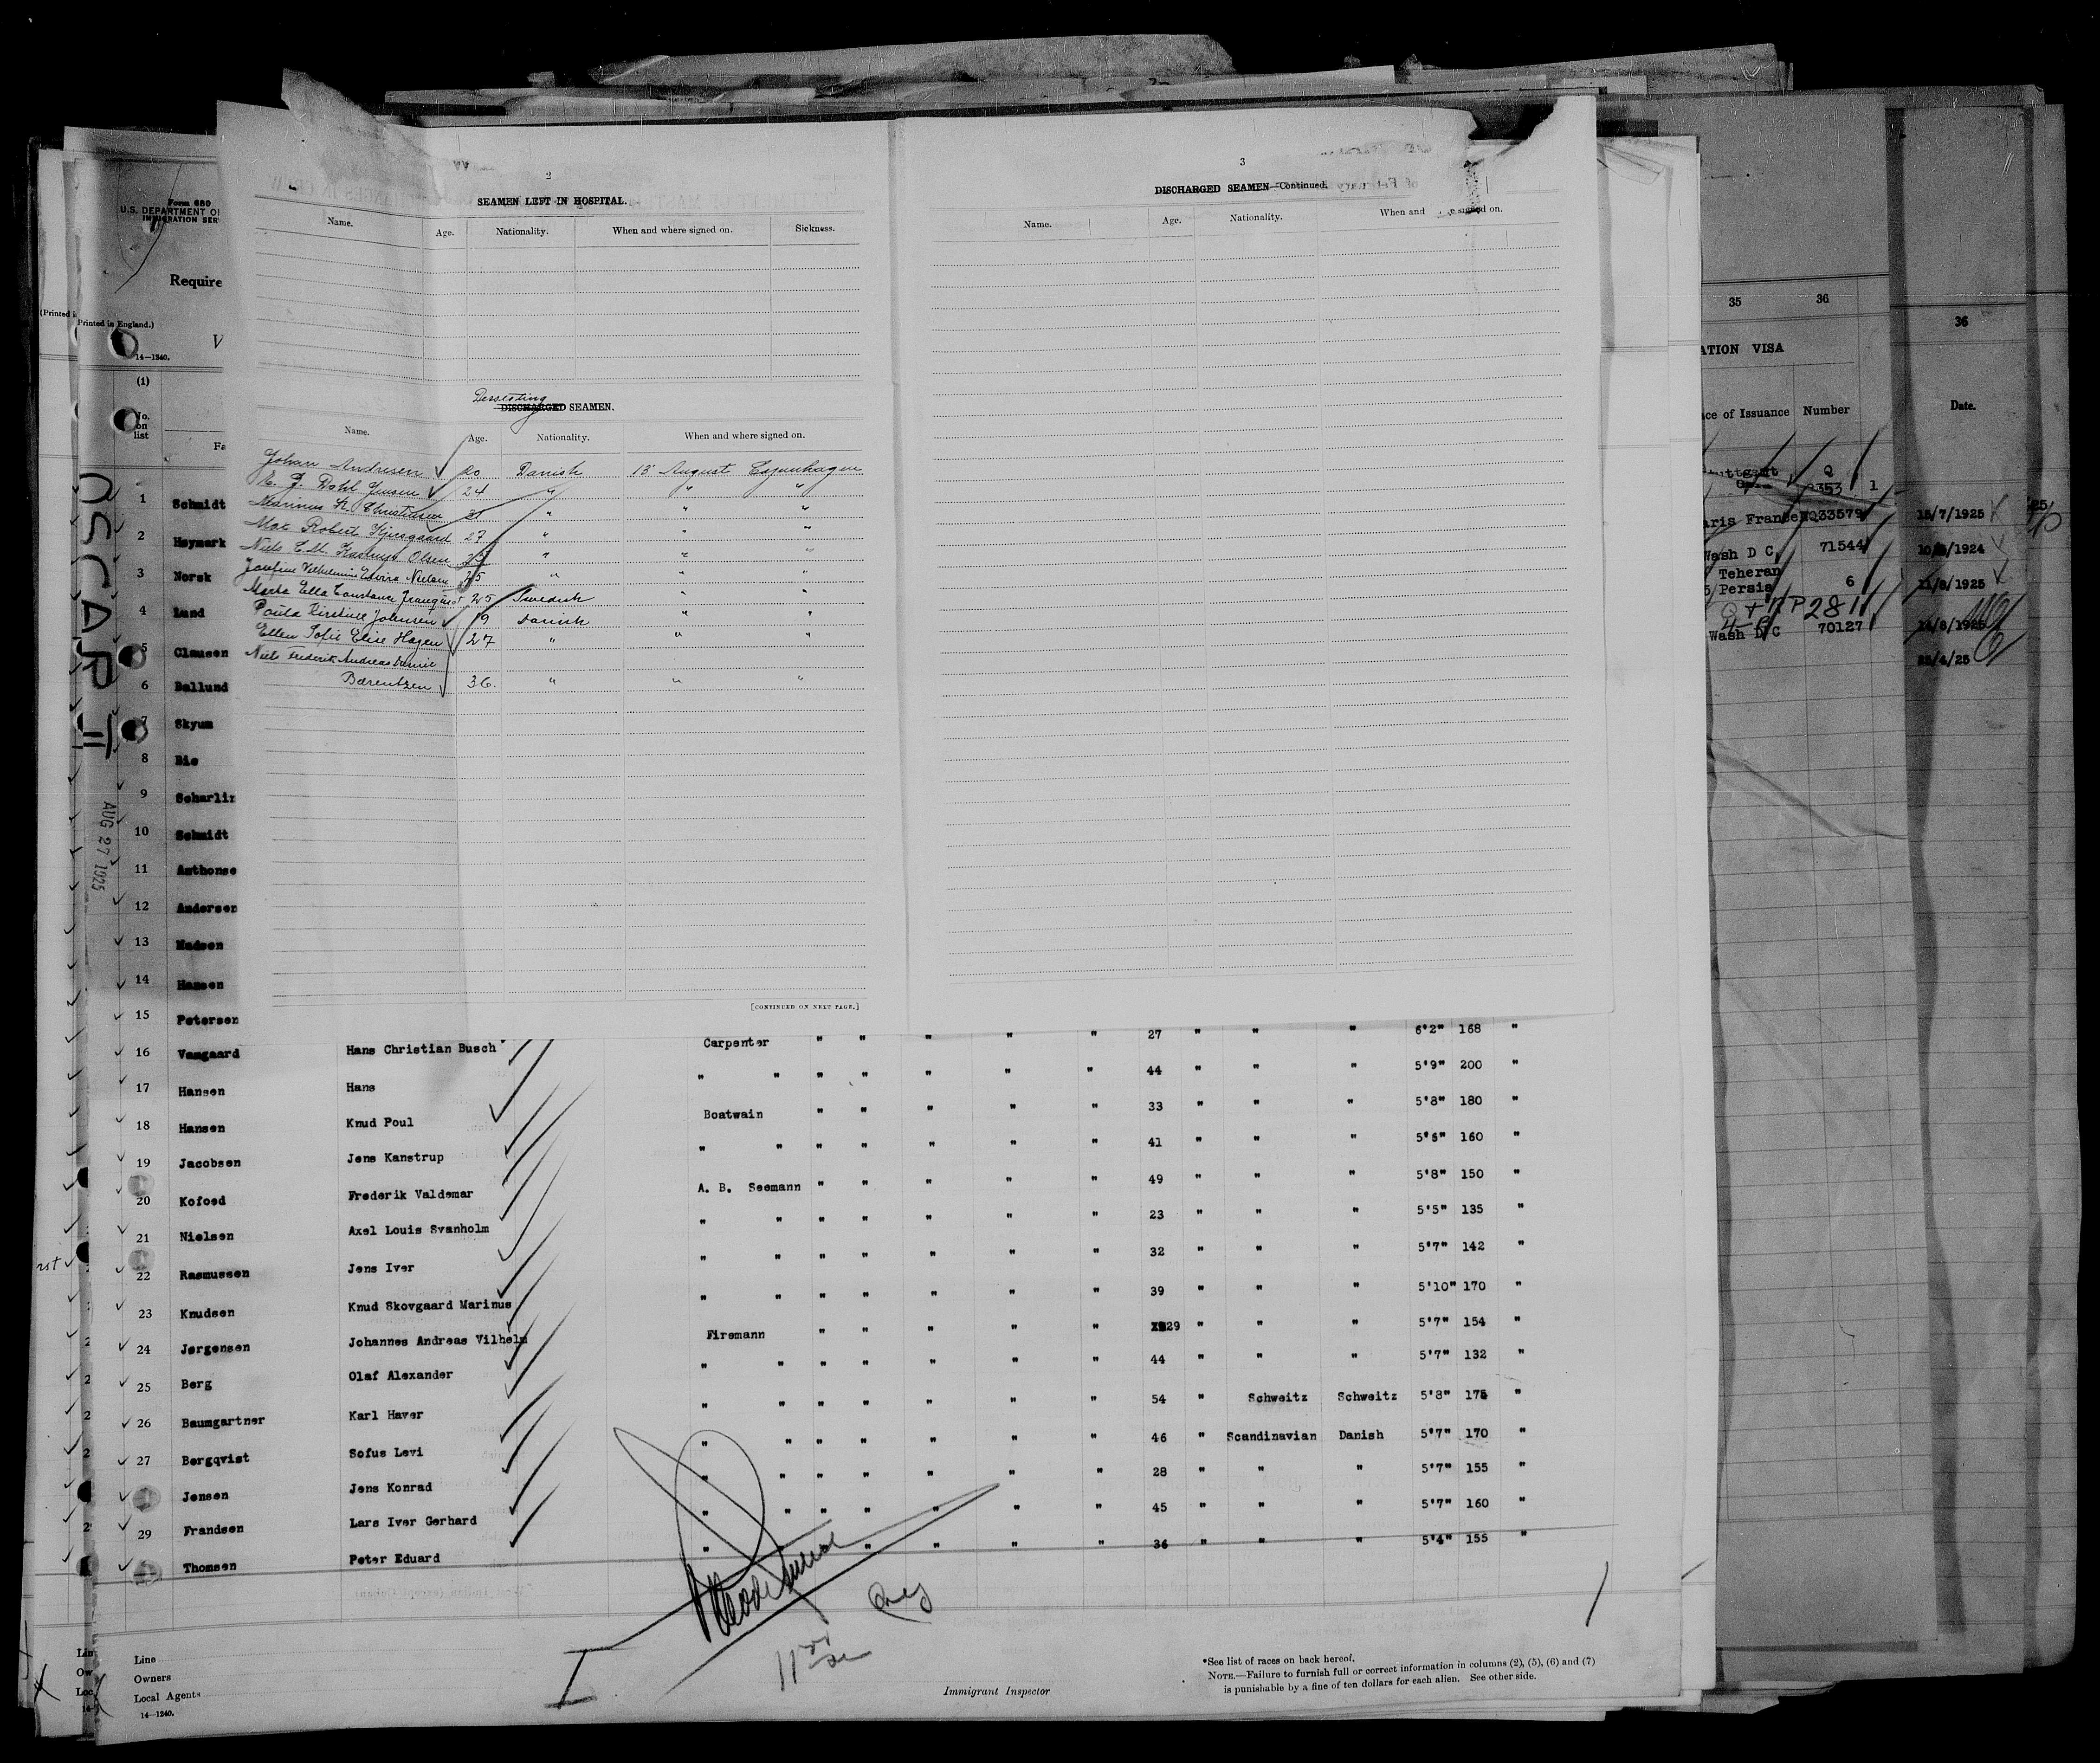 2
SEAMEN LEFT IN HOSPITAL.
Name. Age. Nationality. When and where signed on. Sickness.
Deserting
DISCHARGED SEAMEN.
Name. Age. Nationality. When and where signed on.
Johan Andresen 20 Danish 13' August Copenhagen
Dahl Jensen 24 " " "
Marinus Christensen " " "
Robert 27 " " "
Niels Olsen " " "
Josefine Vilhelmine Elvira Nielsen 25 " " "
Marta Ella Constance 25 Swedish " "
Paula Kirstine Johnsen 19 Danish " "
Ellen Sofie Elise Hagen 27 " " "
Niels Frederik Andreas
Bærentzen 36. " " "
[CONTINUED ON NEXT PAGE.]
3
DISCHARGED SEAMEN—Continued.
Name. Age. Nationality. When and signed on.
of February
Form 680
U.S. DEPARTMENT O
IMMIGRATION SER
Require
(Printed i
Printed in England.)
V
14—1240.
(1)
No.
on
list
Fa
OSCAR II
AUG 27 1925
1 Schmidt
2 Høymark
3 Norsk
4 Lund
5 Clausen
6 Ballund
7 Skyum
8 Bie
9 Scharlin
10 Schmidt
11 Anthonse
12 Andersen
13 Madsen
14 Hansen
15 Petersen " " " " " 27 " " " 6'2" 168 "
16 Vamgaard Hans Christian Busch Carpenter " " " " " 44 " " " 5'9" 200 "
17 Hansen Hans " " " " " " " 33 " " " 5'8" 180 "
18 Hansen Knud Poul Boatwain " " " " " 41 " " " 5'6" 160 "
19 Jacobsen Jens Kanstrup " " " " " " " 49 " " " 5'8" 150 "
20 Kofoed Frederik Valdemar A. B. Seemann " " " " " 23 " " " 5'5" 135 "
21 Nielsen Axel Louis Svanholm " " " " " " " 32 " " " 5'7" 142 "
22 Rasmussen Jens Iver " " " " " " " 39 " " " 5'10" 170 "
23 Knudsen Knud Skovgaard Marinus " " " " " " " 29 " " " 5'7" 154 "
24 Jørgensen Johannes Andreas Vilhelm Firemann " " " " " 44 " " " 5'7" 132 "
25 Berg Olaf Alexander " " " " " " " 54 " Schweitz Schweitz 5'8" 175 "
26 Baumgartner Karl Haver " " " " " " " 46 " Scandinavian Danish 5'7" 170 "
27 Bergqvist Sofus Levi " " " " " " " 28 " " " 5'7" 155 "
Jensen Jens Konrad " " " " " " " 45 " " " 5'7" 160 "
29 Frandsen Lars Iver Gerhard " " " " " " " 36 " " " 5'4" 155 "
Thomsen Peter Eduard
Line
Owners
Local Agents
14—1240.
Immigrant Inspector
*See list of races on back hereof.
NOTE.—Failure to furnish full or correct information in columns (2), (5), (6) and (7)
is punishable by a fine of ten dollars for each alien. See other side.
35 36
ATION VISA
ce of Issuance Number
aris France 233579
Wash D C. 71544
Teheran
Persia 6
Wash D C 70127
36
Date.
15/7/1925
11/8/1925
25/4/25